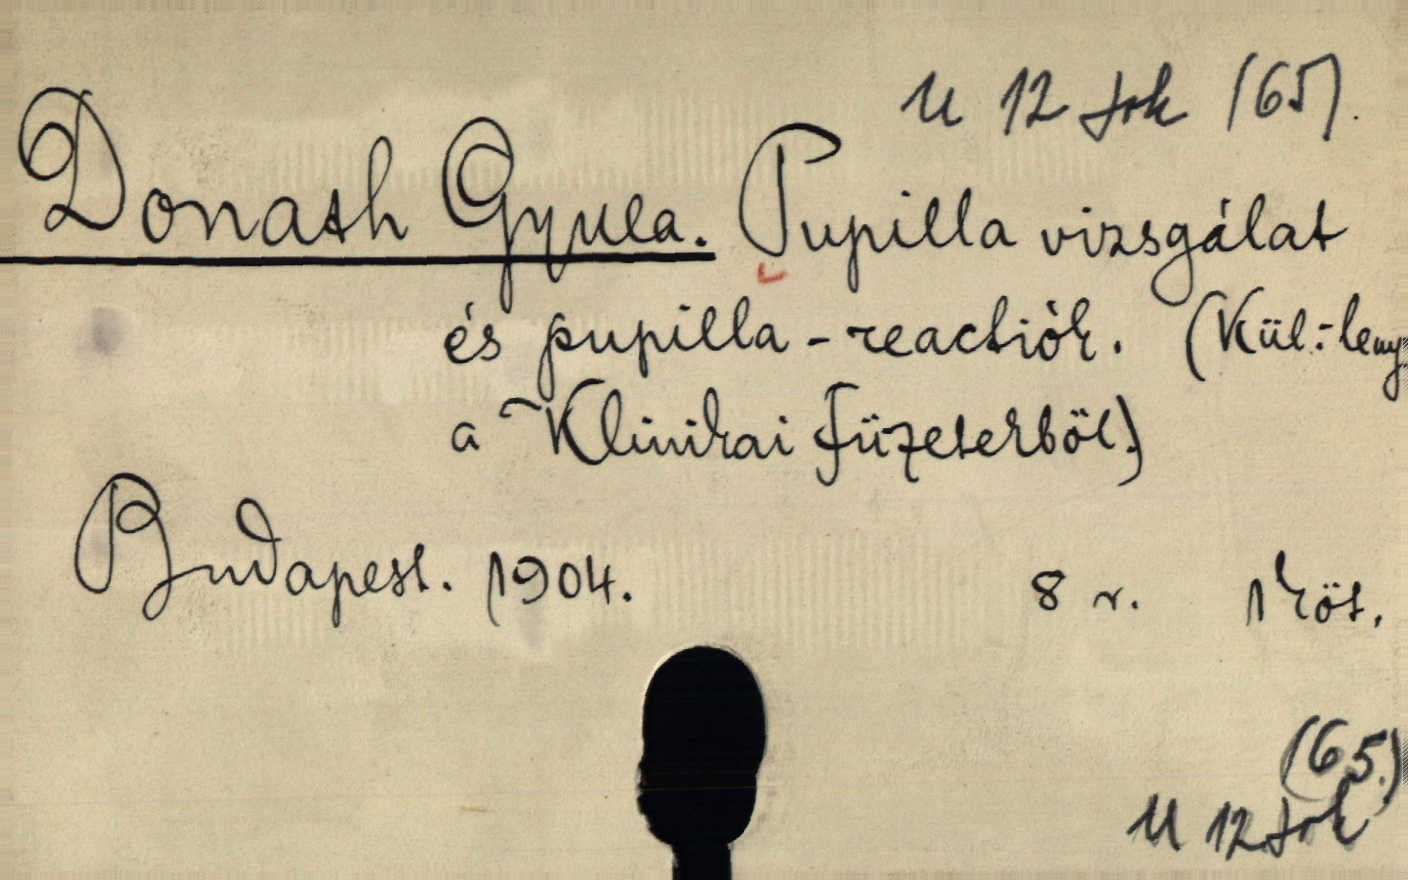 U 12 tok (65).
Donath Gyula. Pupilla vizsgálat
és pupilla-reactiók. (Kül: leny.
a Klinikai füzetekből.)
Budapest. 1904. 8 r. 1 köt.
(65.)
U 12 tok